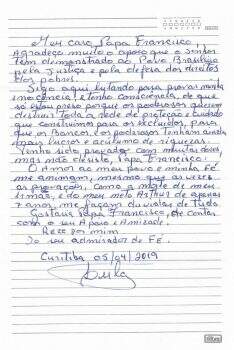 Meu caro Papa Francisco,
Agradeço muito o apoio que o Senhor
tem demonstrado ao Povo Brasileiro
pela Justiça e pela defesa dos direitos
dos pobres.
Sigo aqui lutando para provar minha
inocência, e tenho consciência, de que
só estou preso porque os poderosos querem
destruir toda a rede de proteção e cuidado
que construimos para os excluidos, para
que os Bancos, e os poderosos tenham ainda
mais lucros e acumulo de riquezas.
Tenho sido provado com muitas dores,
mas não desisto, Papa Francisco.
O Amor ao meu povo e minha Fé
me animam, mesmo que as vezes
as provações, como a morte de meu
irmão, e do meu neto Arthur de apenas
7 anos, me façam duvidar de tudo.
Gostaria, Papa Francisco, de contar
com o seu Apoio e Amizade.
Reze por mim
Do seu admirador de FE.
Curitiba 05/04/2019